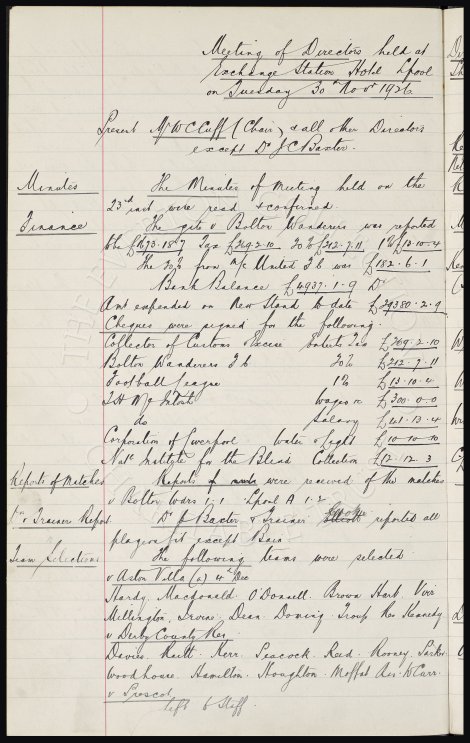 Meeting of Directors held at
Exchange Station Hotel Lpool
on Tuesday 30th Novr 1926
Present Mr W C Cuff (Chair) & all other Directors
except Dr J C Baxter.
Minutes
The Minutes of Meeting held on the
23rd inst were read & confirmed.
Finance
The gate v Bolton Wanderers was reported
to be Tax £269.2.10 20% £212.7.11 1% £13.10.4
The 20% from M/c United F b was £182.6.1
Bank Balance £4937.1.9 Dr
Amt expended on New Stand to date £29380.2.9
Cheques were signed for the following.
Collector of Customs & Excise Entets Tax £269.2.10
Bolton Wanderers F b 20% £212.7.11
Football League 1% £13.10.4
T H McIntosh wages &c £300.0.0
do Salary £41.13.4
Corporation of Liverpool Water & Light £10.10.10
Natl Institute for the Blind Collection £12.12.3
Reports of Matches
Reports were received of the matches
v Bolton Wdrs 1-1 Lpool A 1-2
Dr & Trainers Report
Dr J Baxter & Trainer Cooke reported all
players fit except Bain
Team Selections
The following teams were selected
v Aston Villa (a) 4th Dec
Hardy. Macdonald O'Donnell. Brown Hart Virr
Millington. Irvine. Dean. Dominy. Troup Res Kennedy
v Derby County Res
Davies. Raitt. Kerr. Peacock. Reid. Rooney. Parker
Woodhouse. Hamilton. Houghton. Moffat Res. W Carr.
v Prescot
left to Staff.